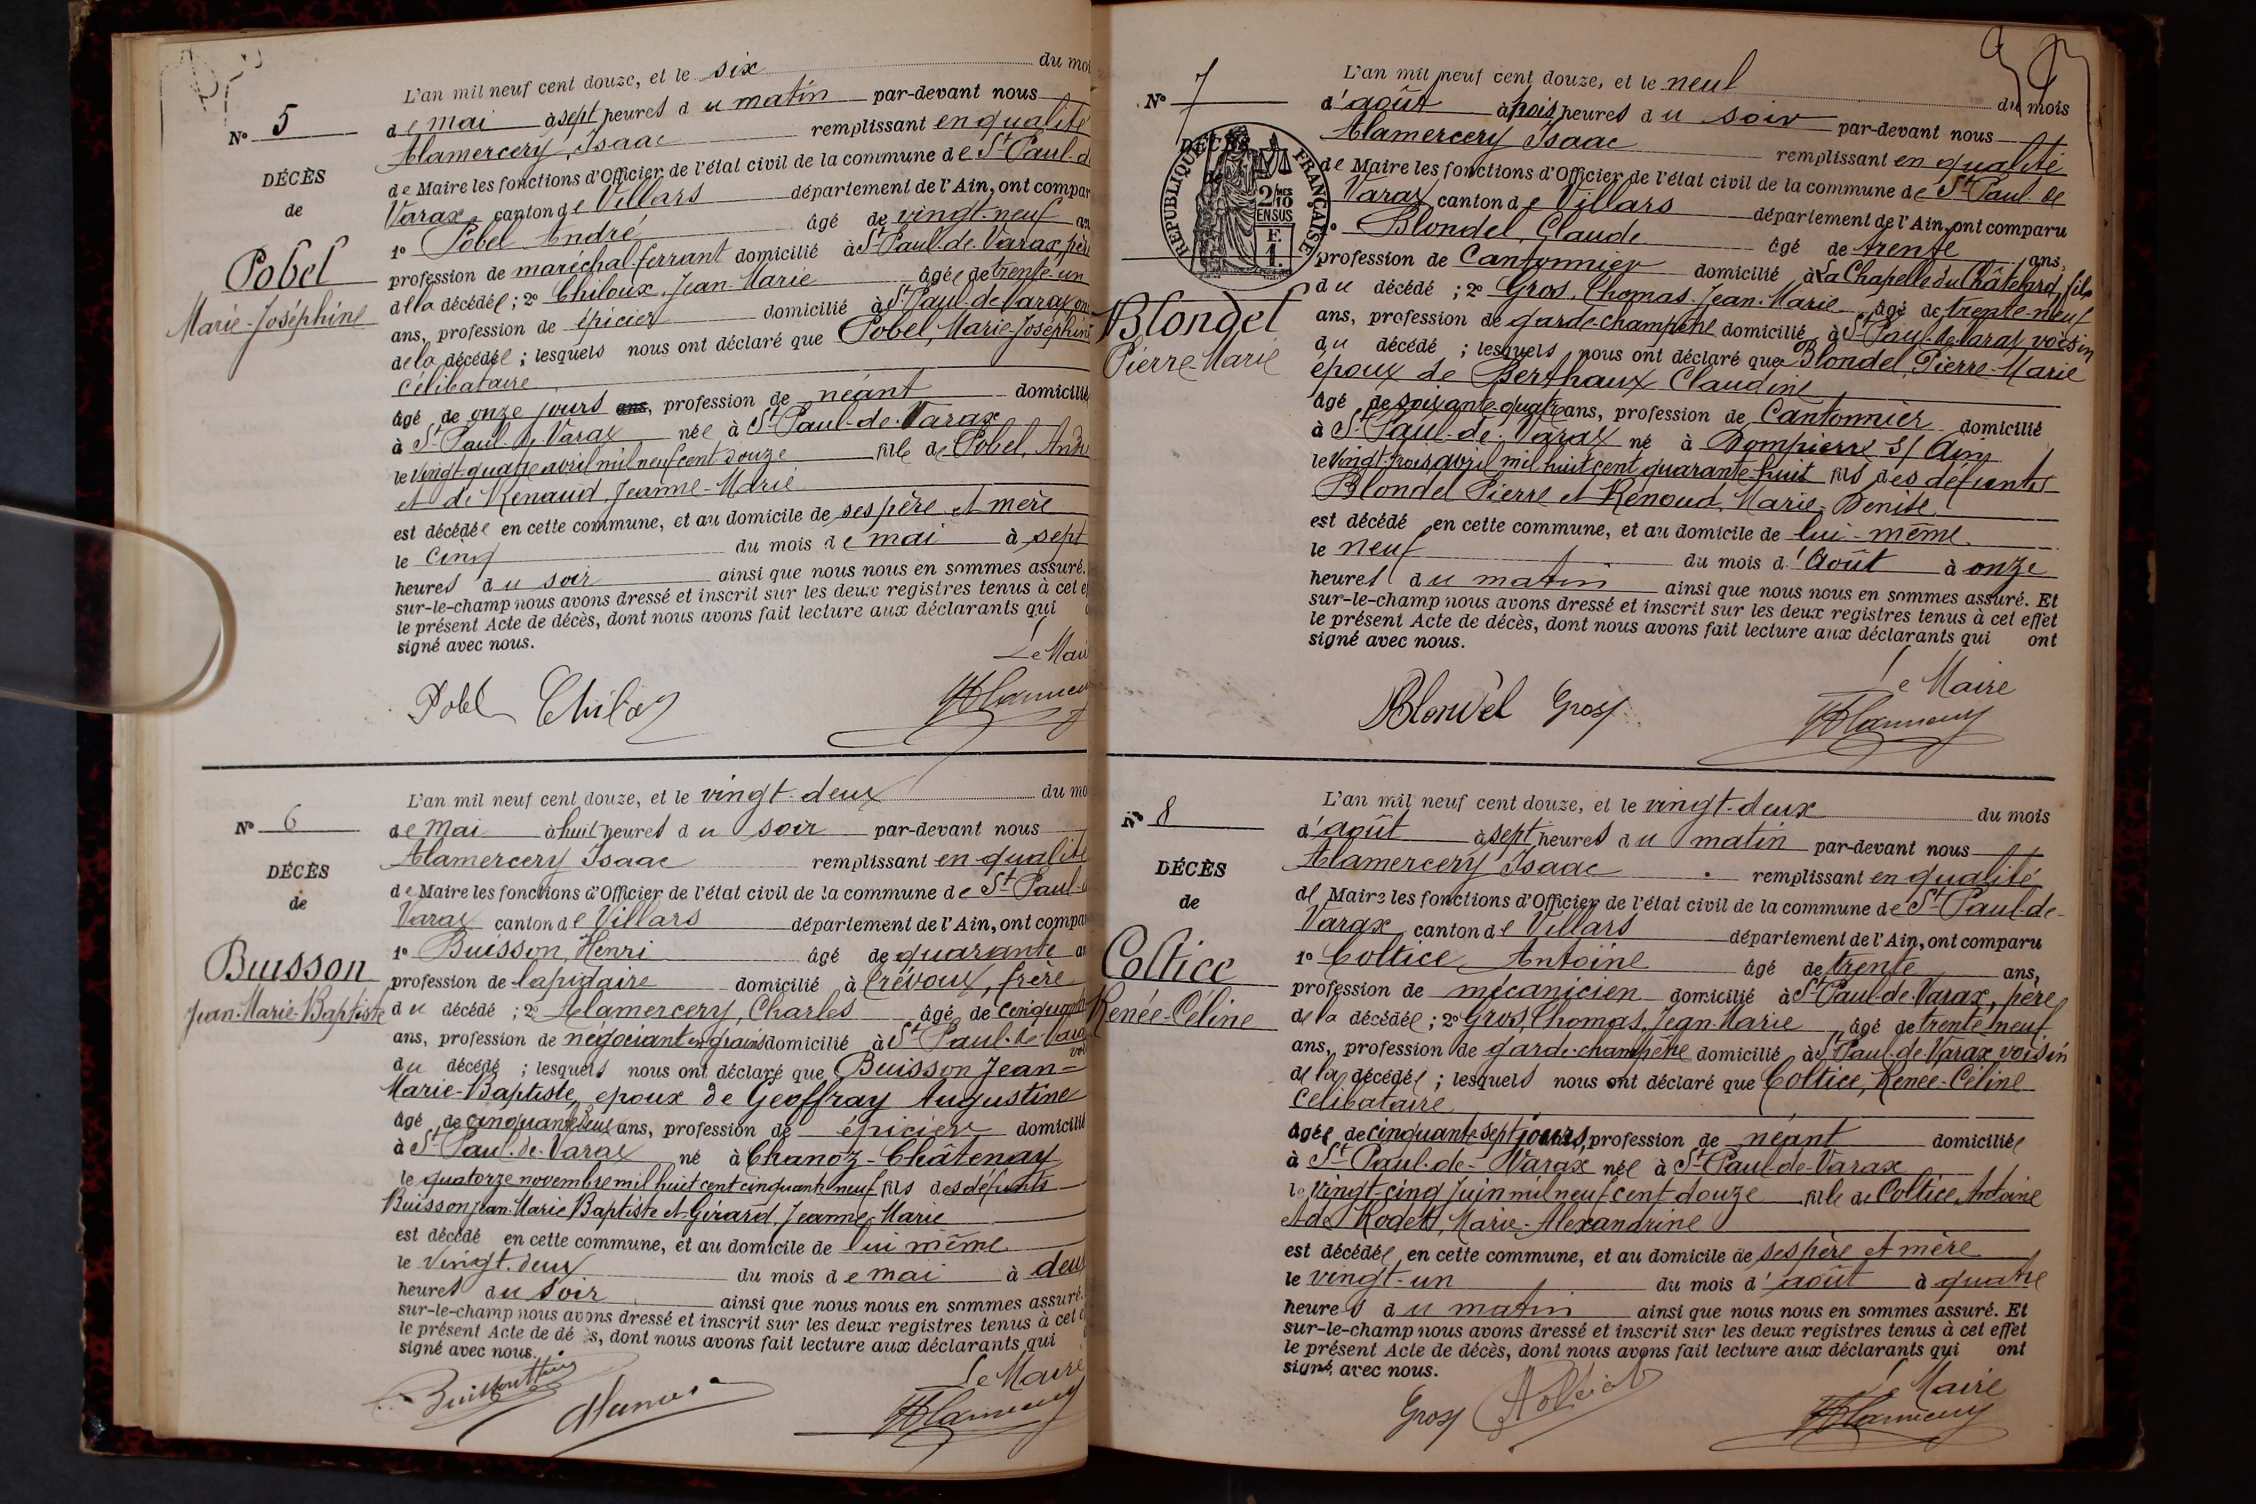 N° 5
DÉCÈS
de
Pobel
Marie-Joséphine
L'an mil neuf cent douze, et le six du moi
de mai à sept heures du matin par-devant nous
Alamercery Isaac remplissant en qualité
de Maire les fonctions d'Officier de l'état civil de la commune de St Paul-d
Varax canton de Villars département de l'Ain, ont compar
1° Pobel André âgé de vingt-neuf an
profession de maréchal-ferrant domicilié à St Paul-de-Varax, pèr
de la décédée ; 2° Chiloux, Jean-Marie âgé de trente-un
ans, profession de épicier domicilié à St Paul-de-Varax
de la décédée ; lesquels nous ont déclaré que Pobel, Marie-Joséphine
célibataire
âgé de onze jours ans, profession de néant domicilié
à St Paul-de-Varax née à St Paul-de-Varax
le vingt-quatre avril mil neuf cent douze fille de Pobel, André
et de Renaud, Jeanne-Marie
est décédée en cette commune, et au domicile de ses père et mère
le cinq du mois de mai à sept
heures du soir ainsi que nous nous en sommes assuré.
sur-le-champ nous avons dressé et inscrit sur les deux registres tenus à cet e
le présent Acte de décès, dont nous avons fait lecture aux déclarants qui
signé avec nous.
Le Mair
Pobel
N° 6
DÉCÈS
de
Buisson
Jean-Marie-Baptiste
L'an mil neuf cent douze, et le vingt-deux du mo
de mai à huit heures du soir par-devant nous
Alamercery Isaac remplissant en qualité
de Maire les fonctions d'Officier de l'état civil de la commune de St Paul-d
Varax canton de Villars département de l'Ain, ont compa
1° Buisson, Henri âgé de quarante a
profession de lapidaire domicilié à Crévoux, frère
du décédé ; 2° Alamercery, Charles âgé de cinquante
ans, profession de négociant en grains domicilié à St Paul-de-Varax
du décédé ; lesquels nous ont déclaré que Buisson Jean=
Marie-Baptiste, époux de Geoffray Augustine
âgé de cinquante-deux ans, profession de épicier domicilié
à St Paul-de-Varax né à Chanoz-Châtenay
le quatorze novembre mil huit cent cinquante neuf fils des défunts
Buisson Jean-Marie Baptiste et Girard, Jeanne-Marie
est décédé en cette commune, et au domicile de lui même
le vingt-deux du mois de mai à deux
heures du soir ainsi que nous nous en sommes assuré.
sur-le-champ nous avons dressé et inscrit sur les deux registres tenus à cet e
le présent Acte de dé s, dont nous avons fait lecture aux déclarants qui
signé avec nous.
Le Maire
N° 7
DÉCÈS
RÉPUBLIQUE FRANÇAISE
2/10 MES
EN SUS
F.
1.
Blondel
Pierre-Marie
L'an mil neuf cent douze, et le neuf du mois
d'août à trois heures du soir par-devant nous
Alamercery Isaac remplissant en qualité
de Maire les fonctions d'Officier de l'état civil de la commune de St Paul de
Varax canton de Villars département de l'Ain, ont comparu
1° Blondel, Claude âgé de trente ans,
profession de Cantonnier domicilié à La Chapelle du Châtelard, fils
du décédé ; 2° Gros, Thomas-Jean-Marie âgé de trente-neuf
ans, profession de garde-champêtre domicilié à St Paul-de-Varax, voisin
du décédé ; lesquels nous ont déclaré que Blondel, Pierre-Marie
époux de Berthaux Claudine
âgé de soixante-quatre ans, profession de Cantonnier domicilié
à St Paul-de-Varax né à Dompierre S/ Ain
le Vingt-trois avril mil huit cent quarante-huit fils des défunts
Blondel Pierre et Renoud, Marie-Denise
est décédé en cette commune, et au domicile de lui-même
le neuf du mois d'Août à onze
heures du matin ainsi que nous nous en sommes assuré. Et
sur-le-champ nous avons dressé et inscrit sur les deux registres tenus à cet effet
le présent Acte de décès, dont nous avons fait lecture aux déclarants qui ont
signé avec nous.
Le Maire
Blondel Gros
N° 8
DÉCÈS
de
Coltice
Renée-Céline
L'an mil neuf cent douze, et le vingt-deux du mois
d'août à sept heures du matin par-devant nous
Alamercery Isaac remplissant en qualité
de Maire les fonctions d'Officier de l'état civil de la commune de St Paul-de-
Varax canton de Villars département de l'Ain, ont comparu
1° Coltice, Antoine âgé de trente ans,
profession de mécanicien domicilié à St Paul-de-Varax, père
de la décédée ; 2° Gros, Thomas, Jean-Marie âgé de trente neuf
ans, profession de garde-champêtre domicilié à St Paul-de-Varax voisin
de la décédée ; lesquels nous ont déclaré que Coltice, Renée-Céline
célibataire
âgée de cinquante sept jours, profession de néant domiciliée
à St Paul-de-Varax née à St Paul-de-Varax
le Vingt-cinq Juin mil neuf cent douze fille de Coltice, Antoine
et de Rodet, Marie-Alexandrine
est décédée en cette commune, et au domicile de ses père et mère
le vingt-un du mois d'août à quatre
heures du matin ainsi que nous nous en sommes assuré. Et
sur-le-champ nous avons dressé et inscrit sur les deux registres tenus à cet effet
le présent Acte de décès, dont nous avons fait lecture aux déclarants qui ont
signé avec nous.
Le Maire
Gros